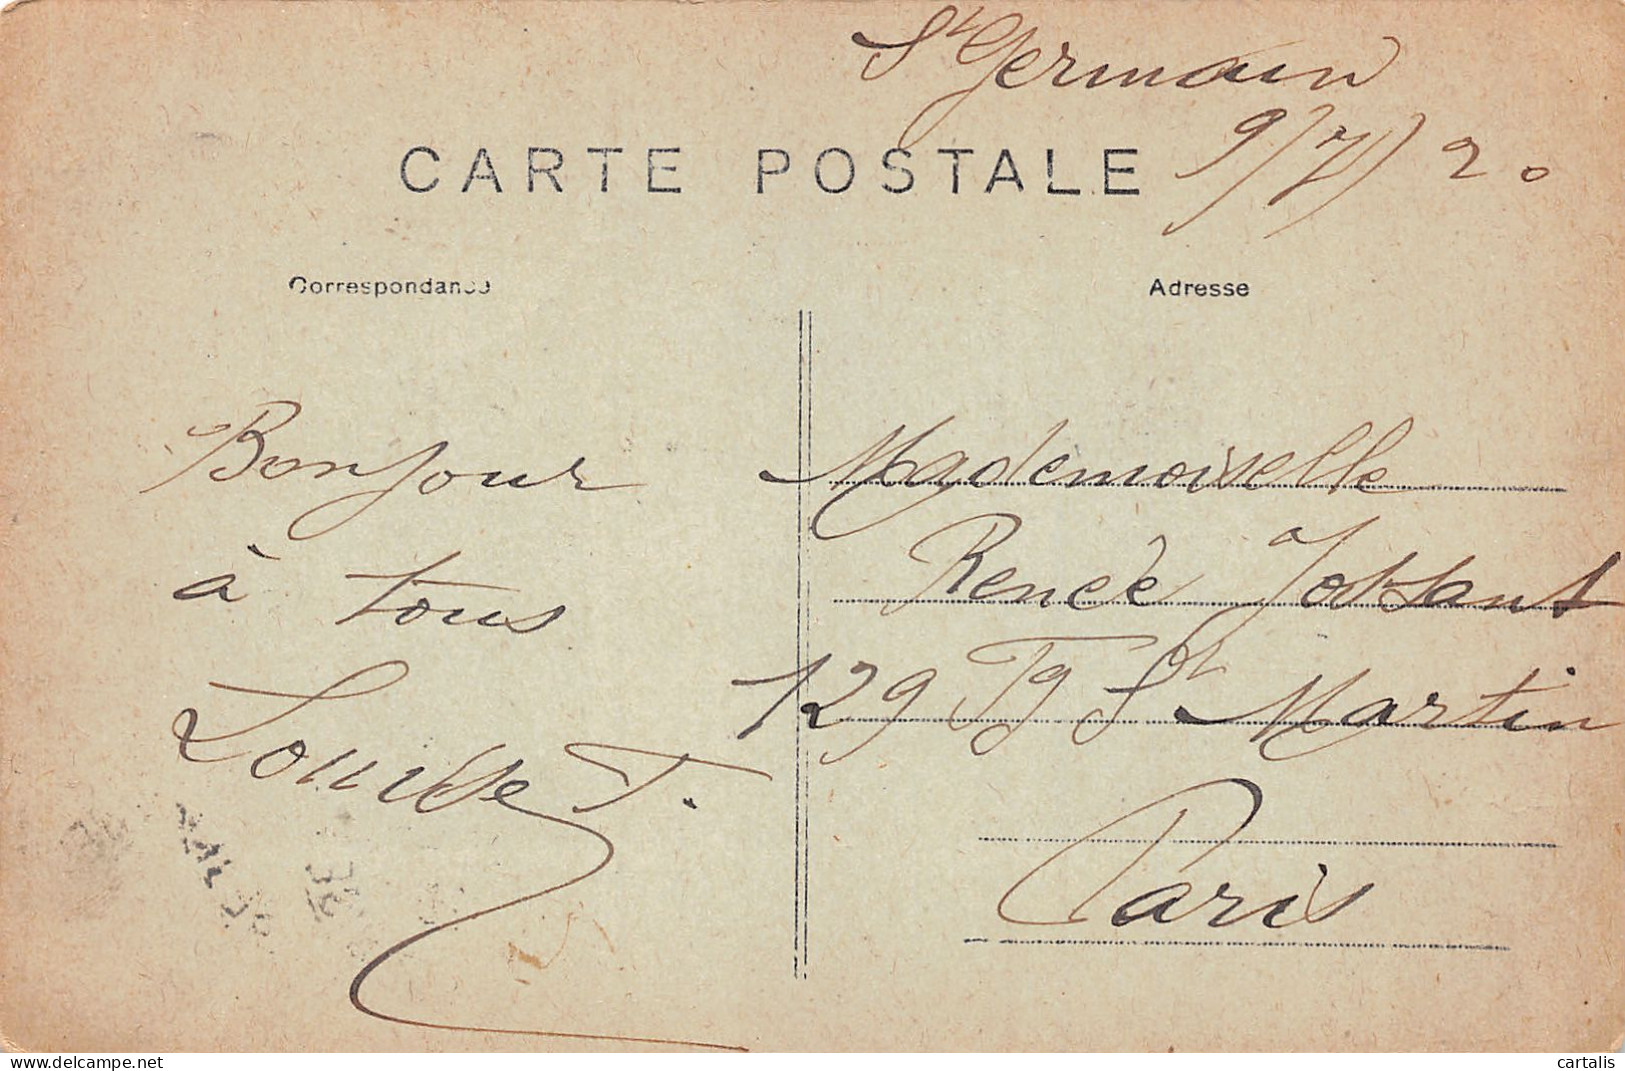 St Germain
9/7/20
CARTE POSTALE
Correspondance
Adresse
Bonjour
à tous
Louise T.
Mademoiselle
Renée Jossant
129 Fg St Martin
Paris
delcampe.net
cartalis